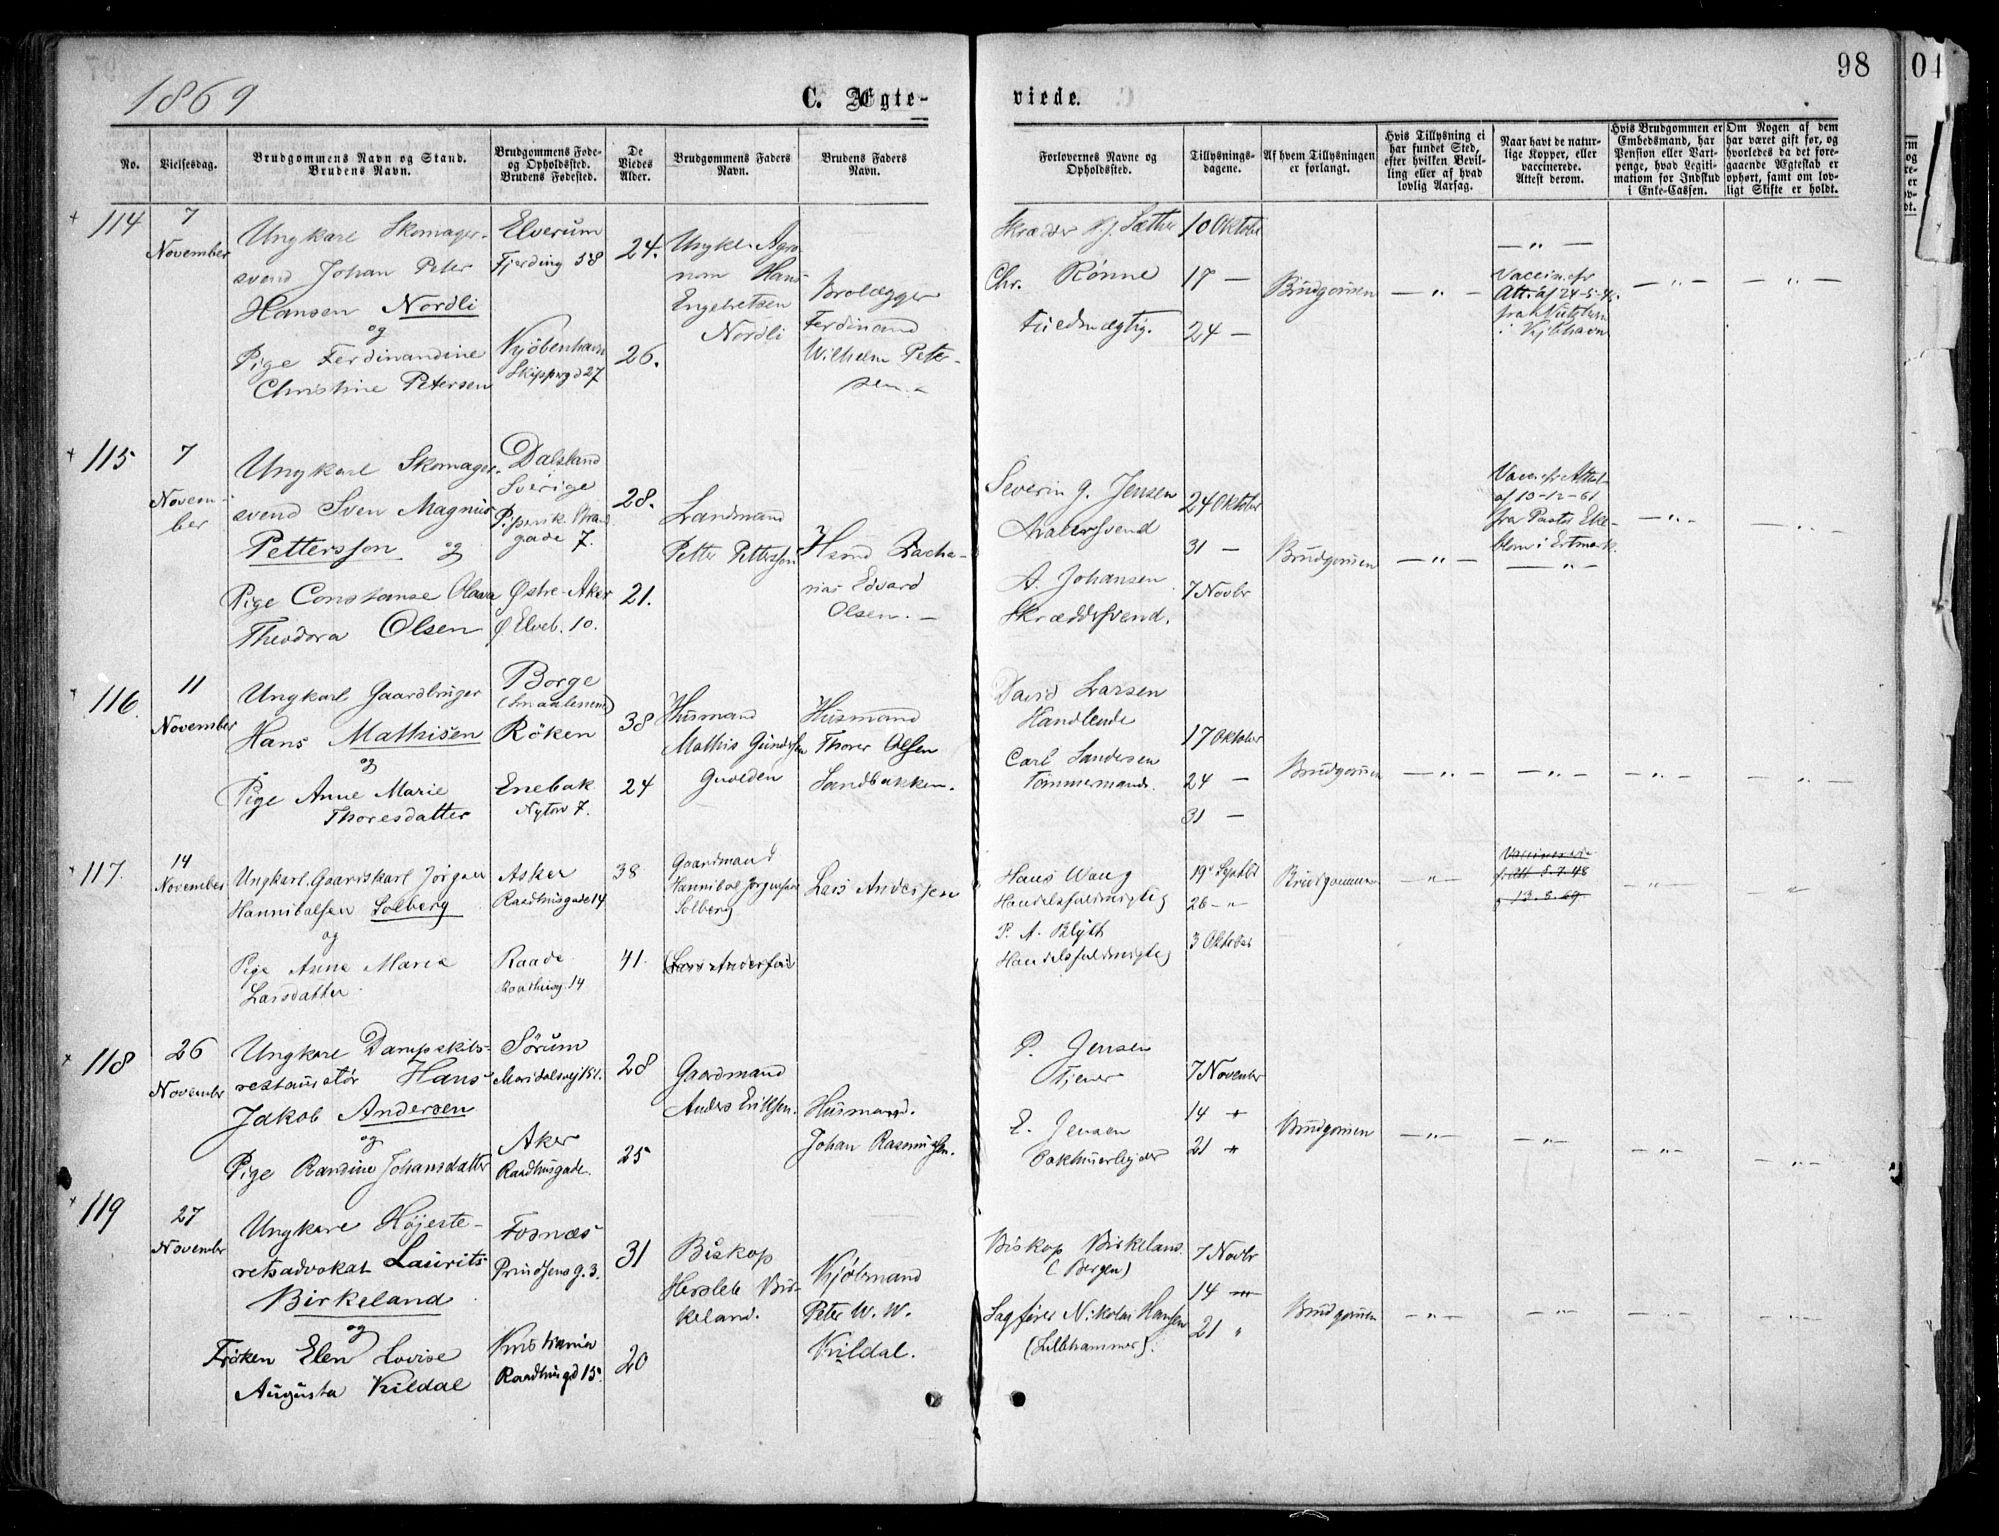 1869
C. Ægte-
viede.
98
No.
Vielsesdag.
Brudgommens Navn og Stand.
Brudens Navn.
Brudgommens Føde-
og Opholdssted.
Brudens Fødested.
De
Viedes
Alder.
Brudgommens Faders
Navn.
Brudens Faders
Navn.
Forlovernes Navne og
Opholdssted.
Tillysnings-
dagene.
Af hvem Tillysningen
er forlangt.
Hvis Tillysning ei
har fundet Sted,
efter hvilken Bevil-
ling eller af hvad
lovlig Aarsag.
Naar havt de natur-
lige Kopper, eller
vaccinerede.
Attest derom.
Hvis Brudgommen er
Embedsmand, har
Pension eller Vart-
penge, hvad Legiti-
mation for Indskud
i Enke-Cassen.
Om Nogen af dem
har været gift før, og
hvorledes da det fore-
gaaende Ægteskab er
ophørt, samt om lov-
ligt Skifte er holdt.
114
7
November
Ungkarl Skomager-
svend Johan Peter
Hansen Nordli
og
Pige Ferdinandine
Christine Petersen
Elverum
Fjerding 58
Kjöbenhavn
Skipperg 27
24.
26.
Ungkl. Agro
nom Hans
Engebretsen
Nordli
Brolægger
Ferdinand
Wilhelm Peter-
sen.
Skræder Sæther
Chr. Rönne
Fuldmægtig.
10 Oktober
17 —
24 —
Brudgommen
— " —
Att. af 24-5-
i Kjöbhavn
— " —
— " —
115
7
Novem-
ber
Ungkarl Skomager-
svend Sven Magnus
Pettersson og
Pige Constanse Olava
Theodora Olsen
Dalsland
Sverige
gade 7.
Østre-Aker
Ø Elveb. 10.
28.
21.
Landmand
Petter Pettersson
Zacha-
rias Edvard
Olsen. —
Severin G. Jensen
Malersvend
A. Johansen
Skræddersvend.
24 Oktober
31 —
7 Novbr
Brudgommen
— " —
af 10-12-61
fra Pastor Eke-
— " —
— " —
— " —
116.
11
November
Ungkarl Gaardbruger
Hans Mathisen
og
Pige Anne Marie
Thoresdatter
Borge
(Smaalenene)
Röken
Enebak
Nytorv 7.
38
24
Husmand
Mathis Gundersen
Husmand
Thorer Olsen
Sandbakken.
David Larsen
Handlende
Carl Sandersen
Tömmermand.
17 Oktober
24 —
31 —
Brudgommen
— " —
— " —
— " —
— " —
117.
14
November
Ungkarl. Gaardskarl Jörgen
Hannibalsen Solberg
og
Pige Anne Marie
Larsdatter.
Asker
Raadhusgade 14
Raade
Raadhusg. 14
38
41.
Gaardmand
Hannibal Jörgensen
Solberg
(Lars Andersen)
Lars Andersen
Hans Wang
Handelsfuldmægtig
P. A. Blyth
Handelsfuldmægtig
19 Septbr
26 — "
3 Oktober
Brudgommen
— " —
Vaccinerede
f. Att 5.7.48
13.8.69
— " —
— " —
118
26
November
Ungkarl Dampskibs-
restauratör Hans
Jakob Andersen
og
Pige Randine Johansdatter
Sörum
Maridalsvej 151.
Aker
Raadhusgade.
28
25
Gaardmand
Anders Eriksen.
Husmand.
Johan Rasmussen.
P. Jensen
Tjener
E. Jensen
Pakhusarbejder
7 November
14 "
21 "
Brudgommen
— " —
— " —
— " —
— " —
119
27
November
Ungkarl Höjeste-
retsadvokat Laurits
Birkeland
og
Fröken Elen Lovise
Augusta Kildal
Fosnæs
Prindsens g. 3.
Kristiania
Raadhusgd 15
31
20
Biskop
Hersleb Bir-
keland.
Kjöbmand
Peter W. W.
Kildal.
Biskop Birkeland
(Bergen)
Sagförer Nikolai Hansen
(Lillehammer).
7 Novbr
14 "
21 "
Brudgommen
— " —
— " —
— " —
— " —